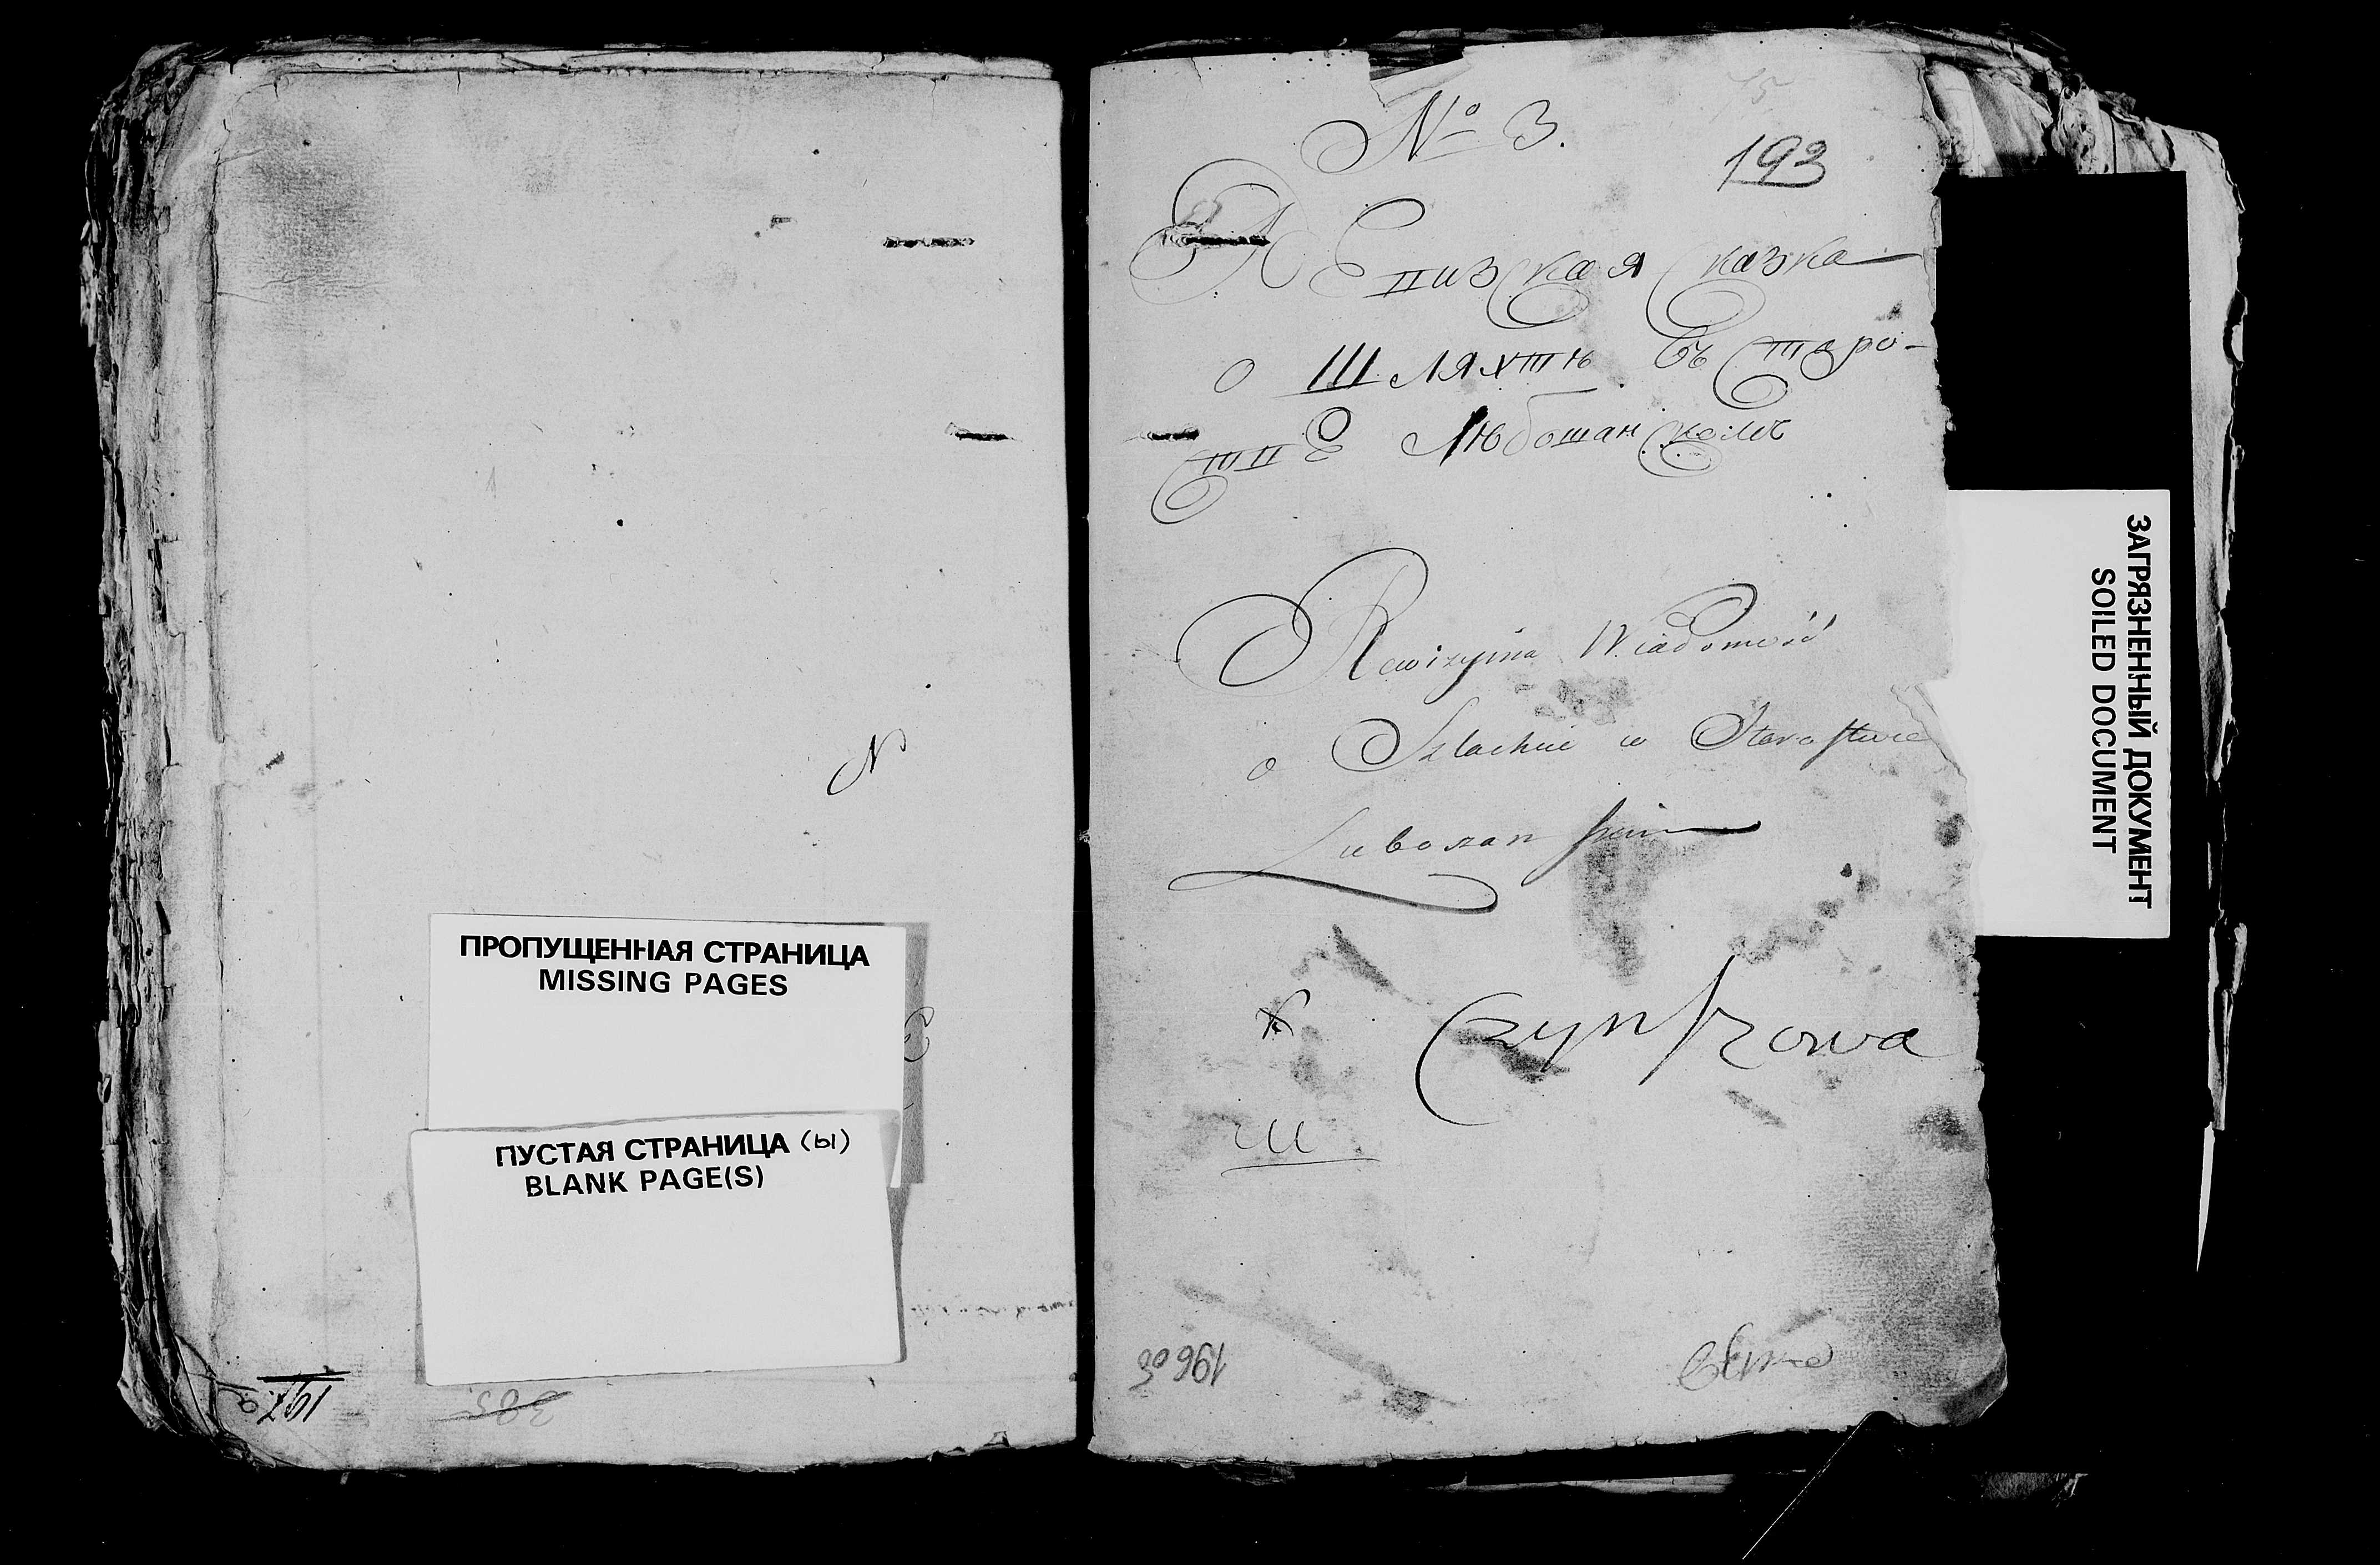 N
ПРОПУЩЕННАЯ СТРАНИЦА
MISSING PAGES
ПУСТАЯ СТРАНИЦА (ы)
BLANK PAGE(S)
197
385
№ 3.
75
193
Сказка
о Шляхтѣ въ Старо-
стпе Любошанскомъ
Rewizyina Wiadomość
o Szlachcie w Starostwie
Luboszanskim
Czynszowa
196 об
ЗАГРЯЗНЕННЫЙ ДОКУМЕНТ
SOILED DOCUMENT